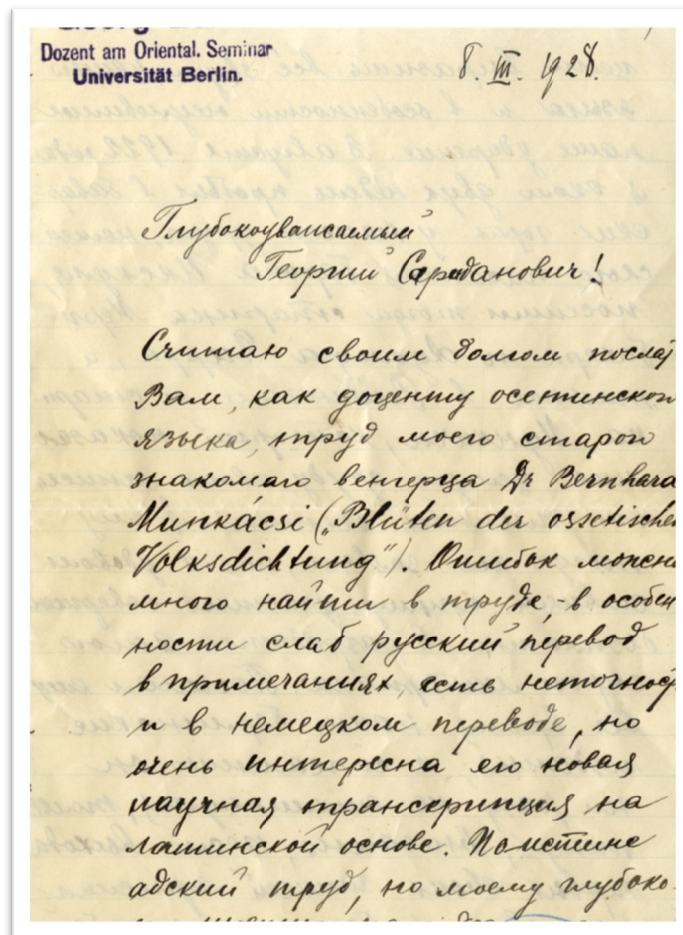 Dozent am Oriental. Seminar
Universität Berlin.
8. III. 1928.
Глубокоуважаемый
Георгий !
Считаю своим долгом послать
Вам, как доценту осетинского
языка, труд моего старого
знакомаго венгерца Dr Bernhard
Munkácsi („Blüten der ossetischen
Volksdichtung"). Ошибок можно
много найти в труде, - в особен
ности слаб русский перевод
в примечаниях, есть неточност
и в немецком переводе, но
очень интересна его новая
научная транскрипция на
латинской основе. Поистине
адский труд, по моему глубоко-